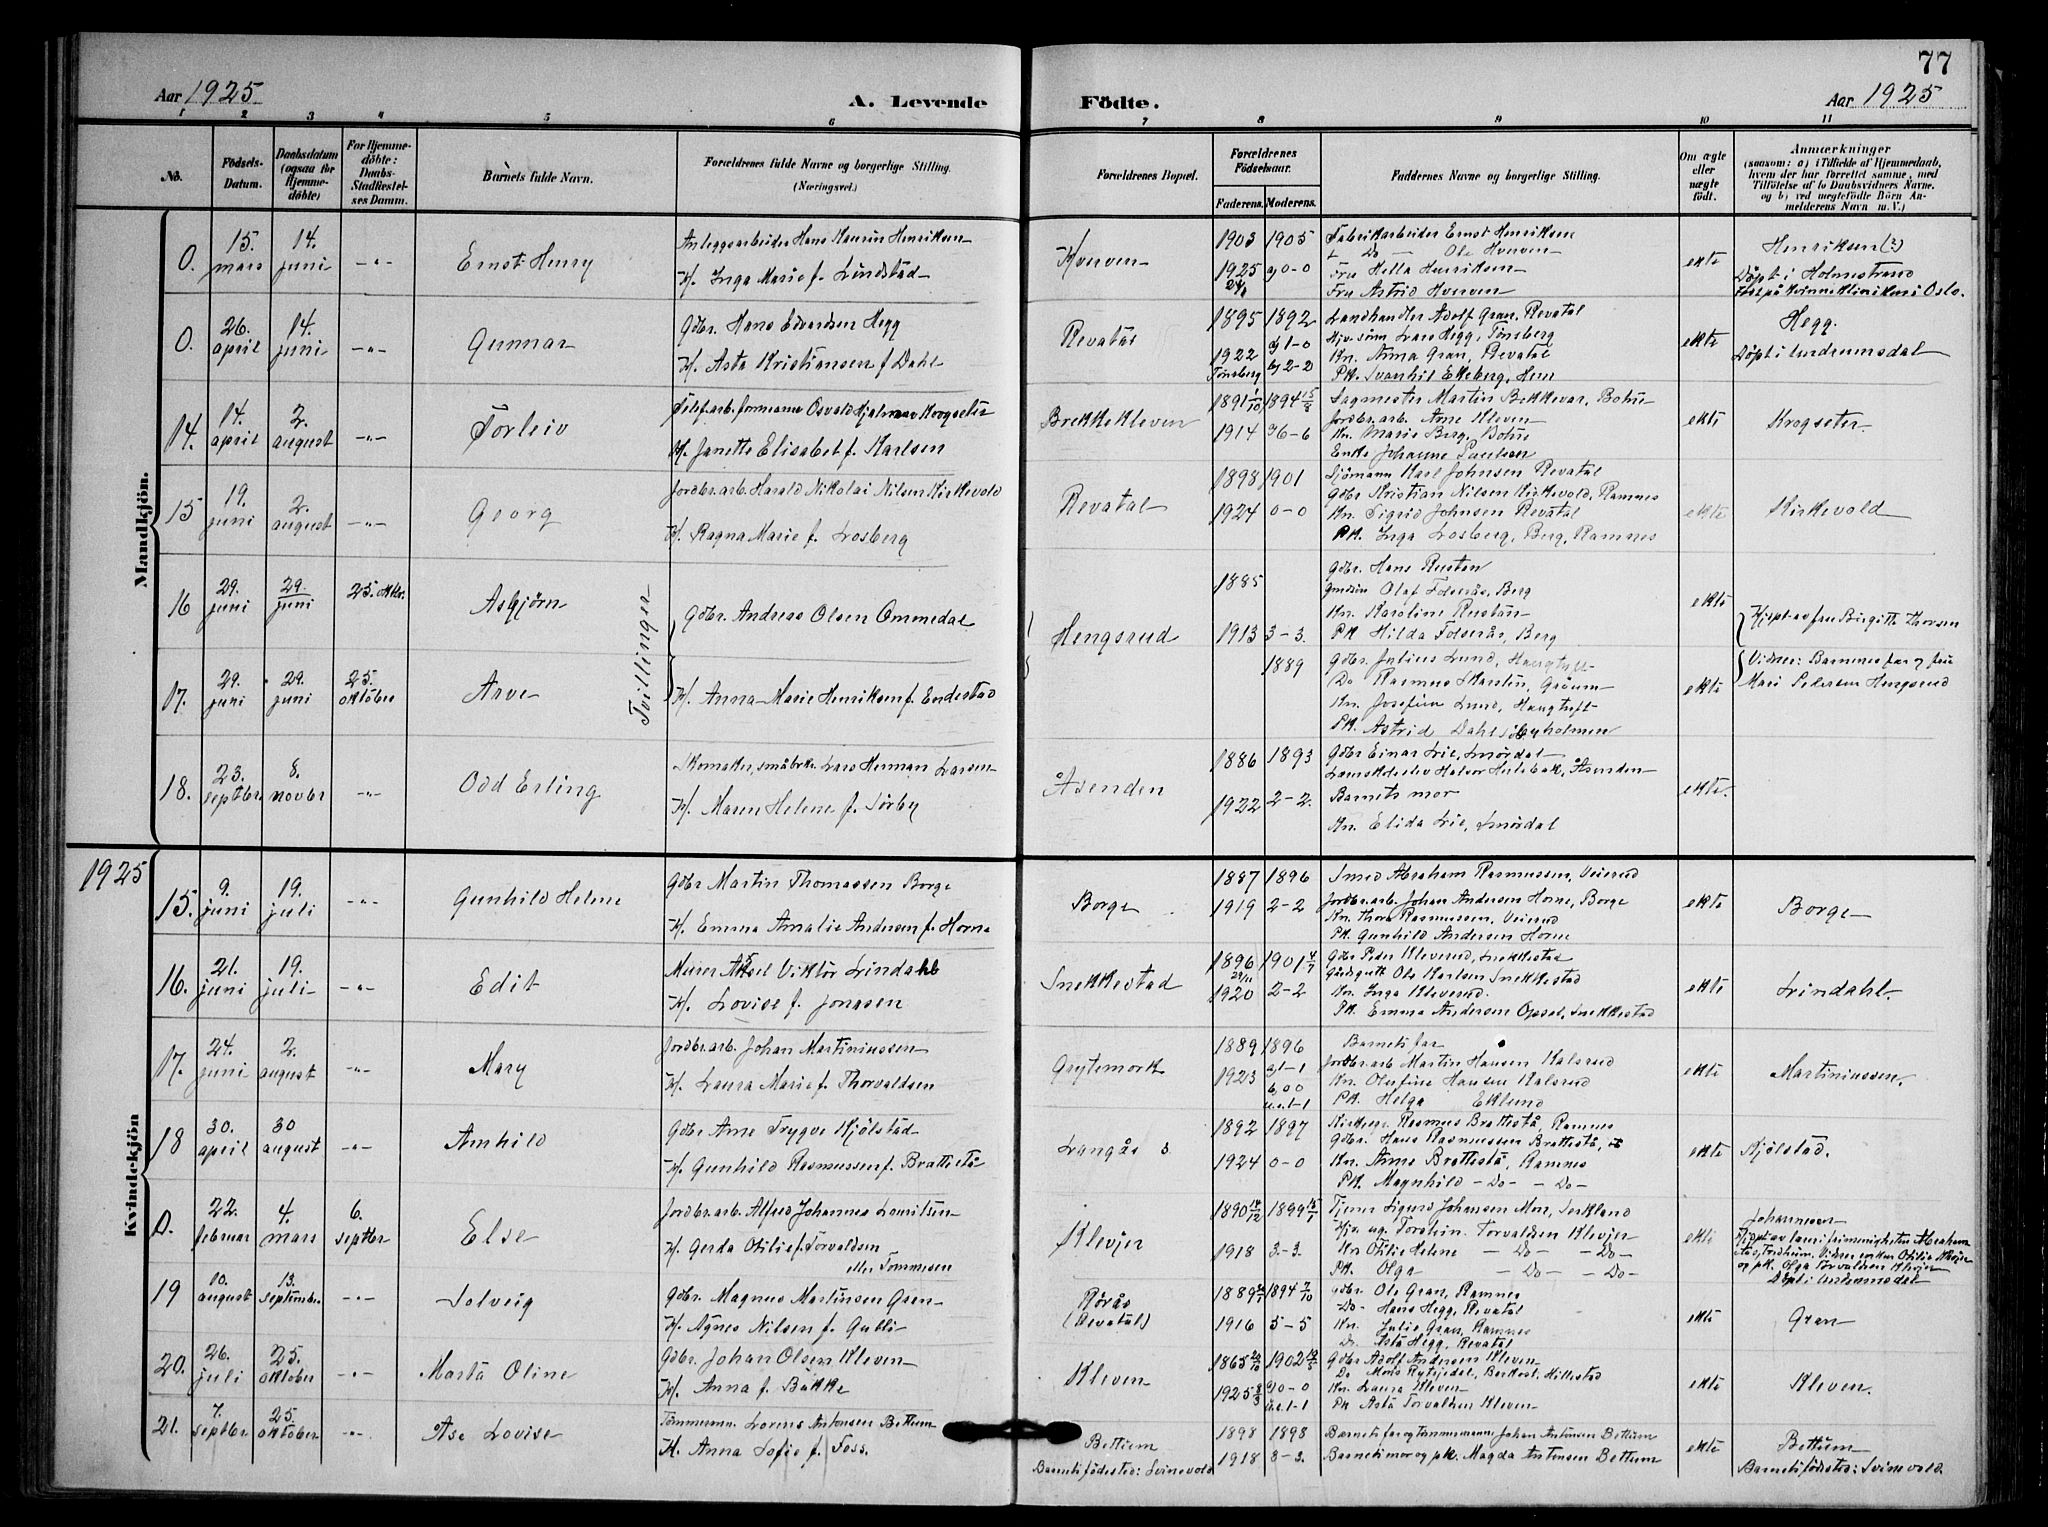 77
Aar 1925
A. Levende
Födte.
Aar 1925
1 2 3 4 5 6 7 8 9 10 11
No.
Födsels-
Datum.
Daabsdatum
(ogsaa for
Hjemme-
döbte)
For Hjemme-
döbte:
Daabs-
Stadfæstel-
ses Datum.
Barnets fulde Navn.
Forældrenes fulde Navne og borgerlige Stilling.
(Næringsvei.)
Forældrenes Bopæl.
Forældrenes
Födselsaar.
Faderens. Moderens.
Faddernes Navne og borgerlige Stilling.
Om ægte
eller
uægte
født.
Anmærkninger
(saasom: a) i Tilfælde af Hjemmedaab,
hvem der har forrettet samme, med
Tilföielse af to Daabsvidners Navne.
og b) ved uegtefödte Börn An-
melderens Navn m. V.)
Mandkjön.
0. 15. mars 14. juni -"- Ernst Henry
Anleggsarbeider Hans Henriksen
H. Inga Marie f. Lindstad
Hverven
1903 1905
1925 g 0-0
Fabrikarbeider Ernst Henriksen
Do Ole Hverven
Fru Hella Henriksen
Fru Astrid Hverven
ekte
Henriksen (?)
Döpt i Holmestrand
Född på kvinneklinikken i Oslo.
0. 26. april 14. juni -"- Gunnar
Gdbr. Hans Edvardsen Hegg
H. Asta Kristiansen f Dahl
Revatal
1895 1892
1922 g 1-0
Tønsberg 2-2
Landhandler Adolf Gran, Revatal
Lars Hegg, Tønsberg
Kn. Anna Gran, Revatal
Pk. Svanhil Ekeberg, Hem
ekte
Hegg.
Döpt i Undrumsdal
14. 14. april 2. august -"- Torleiv
Telef.arb. formann Osvald Hjalmar Krogseter
H. Janette Elisabet f. Karlsen
Brekkekleven
1891 1/10 1894 15/8
1914 6-6
Sagmester Martin Bekkevar, Bohus
Jordbr.arb. Arne Kleven
Kn. Marie Berg, Bohus
Enke Johanne Paulsen
ekte
Krogseter.
15 19. juni 2. august -"- Georg
Jordbr.arb. Harald Nikolai Nilsen Kirkevold
H. Ragna Marie f. Losberg
Revatal
1898 1901
1924 0-0
Sjömann Karl Johnsen Revatal
Gdbr Kristian Nilsen Kirkevold, Ramnes
Kn. Sigrid Johnsen Revatal
Pk. Inga Losberg, Berg, Ramnes
ekte
Kirkevold
16 29. juni 29. juni 25. oktbr. Asbjörn
Tvillinger
Gdbr. Andreas Olsen Ommedal
Hengsrud
1885
1913 3-3.
Gdbr. Hans Rustan
Olaf Folserås, Berg
Kn. Karoline Rustan
Pk. Hilda Folserås, Berg
ekte
Hj.döpt av fru Birgitte Thorsen
17. 29. juni 29. juni 25. oktober Arve
H. Anna Marie Henriksen f. Enderstad
1889
Gdbr. Julius Lund, Haugtuft
Do Rasmus Martin, Gröum
Kn. Josefine Lund, Haugtuft
Pk. Astrid Dahl
ekte
Vidner: Barnets far og fru
Mari Petersen Hengsrud
18. 23. septbr. 8. novbr -"- Odd Erling
Skomaker, småbrk. Lars Herman Larsen
H. Maren Helene f. Sörby
Åsenden
1886 1893
1922 2-2.
Gdbr Einar Lie, Smördal
Halvor Hulebak, Åsenden
Barnets mor
Kn. Elida Lie, Smördal
ekte.
1925
Kvindekjön
15. 9. juni 19. juli -"- Gunhild Helene
Gdbr Martin Thomassen Borge
H. Emma Amalie Andersen f. Horne
Borge
1887 1896
1919 2-2
Smed Abraham Rasmussen, Veierud
Jordbr.arb. Johan Andersen Horne, Borge
Kn. Thora Rasmussen, Veierud
Pk. Gunhild Andersen Horne
ekte
Borge
16. 21. juni 19. juli -"- Edit
Murer Aksel Viktor Lindahl
H. Lovise f. Jonassen
Snekkestad
1896 1901 4/7
29/11
1920 2-2
Gdbr Peder Kleverud, Snekkestad
Gårdsgutt Ole Karlsen Snekkestad
Kn. Inga Kleverud.
Pk. Emma Andersen Opsal, Snekkestad
ekte
Lindahl.
17. 24. juni 2. august -"- Mary
Jordbr.arb. Johan Martiniussen
H. Laura Marie f. Thorvaldsen
Grytemork
1889 1896
1923 g 1-1
b. 00
u.e. 1-1
Barnets far
Jordbr.arb Martin Hansen Kalsrud
Kn. Olufine Hansen Kalsrud
Pk. Helga Eklund
ekte
Martiniussen.
18 30. april 30 august -"- Arnhild
Gdbr Arne Trygve Kjölstad
H. Gunhild Rasmussen f. Brattestå
Langås s
1892 1897
1924 0-0
Kirketj. Rasmus Brattestå, Ramnes
Gdbr. Hans Rasmussen Brattestå,
Kn. Anna Brattestå, Ramnes
Pk. Magnhild - Do - - Do -
ekte
Kjölstad.
0. 22. februar 4. mars 6. septbr Else
Jordbr.arb. Alfred Johannes Lauritsen
H. Gerda Otilie f. Torvaldsen
eller Tommesen
Klevjer
1890 14/12 1899 15/1
1918 3-3.
Tjener Sigurd Johansen Moe,
Torstein Torvaldsen Klevjer
Kn Otilie Helene - Do - - Do -
Pk. Olga - Do - - Do -
ekte
Johannesen
Vidner enken Otilie Klevjer
og pk. Olga Torvaldsen Klevjer
Döpt i Undrumsdal
19 10. august 13. septembr. -"- Solveig
Gdbr. Magnus Martinsen Gran
H. Agnes Nilsen f. Gulli
Rörås
(Revatal)
1889 1894 7/10
1916 5-5
Gdbr. Ole Gran, Ramnes
Do Hans Hegg, Revatal
Kn. Julie Gran, Ramnes
Do. Asta Hegg, Revatal
ekte
Gran
20. 26. juli 25. oktober -"- Marta Oline
Gdbr. Johan Olsen Kleven
H. Anna f. Bakke
Kleven
1865 1902
1925 g 0-0
u.e. 1-1
Gdbr Adolf Andersen Kleven
Do Hillestad
Kn. Laura Kleven
Pk Asta Torvaldsen Kleven
ekte
Kleven.
21. 7. septbr. 25. oktober -"- Åse Lovise
Tömmermann. Lorens Antonsen Bettum
H. Anna Sofie f. Foss.
Bettum
Barnets födested: Svinevold
1898 1898
1918 3-3.
Barnets far og tömmermann Johan Antonsen Bettum
Barnets mor og pk. Magda Antonsen Bettum
ekte
Bettum
Barnets födested: Svinevold.